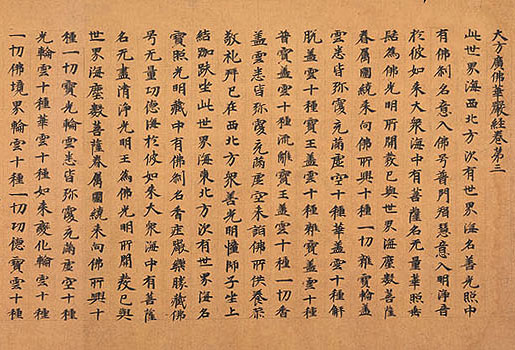 大方廣佛華嚴經卷第三
此世界海西北方次有世界海名善光照中
有佛刹名意入佛号普門智慧意入明淨音
於彼如来大衆海中有菩薩名无量華照垂
髻為佛光明所開發已與世界海塵數菩薩
眷属圍繞来向佛所興十種一切雜寶輪蓋
雲悉皆弥覆充滿虚空十種華蓋雲十種解
脱蓋雲十種寶王蓋雲十種雜寶蓋雲十種
普寶蓋雲十種流離寶王蓋雲十種一切香
蓋雲悉皆弥覆充滿虚空来詣佛所供養恭
敬礼拜已在西北方衆善光明幢師子坐上
結跏趺坐此世界海東北方次有世界海名
寶照光明藏中有佛刹名香莊嚴樂勝藏佛
号无量功德海於彼如来大衆海中有菩薩
名无盡清淨光明王為佛光明所開發已與
世界海塵數菩薩眷属圍繞来向佛所興十
種一切寶光輪雲悉皆弥覆充滿虚空十種
光輪雲十種華雲十種如来變化輪雲十種
一切佛境界輪雲十種一切功德寶雲十種